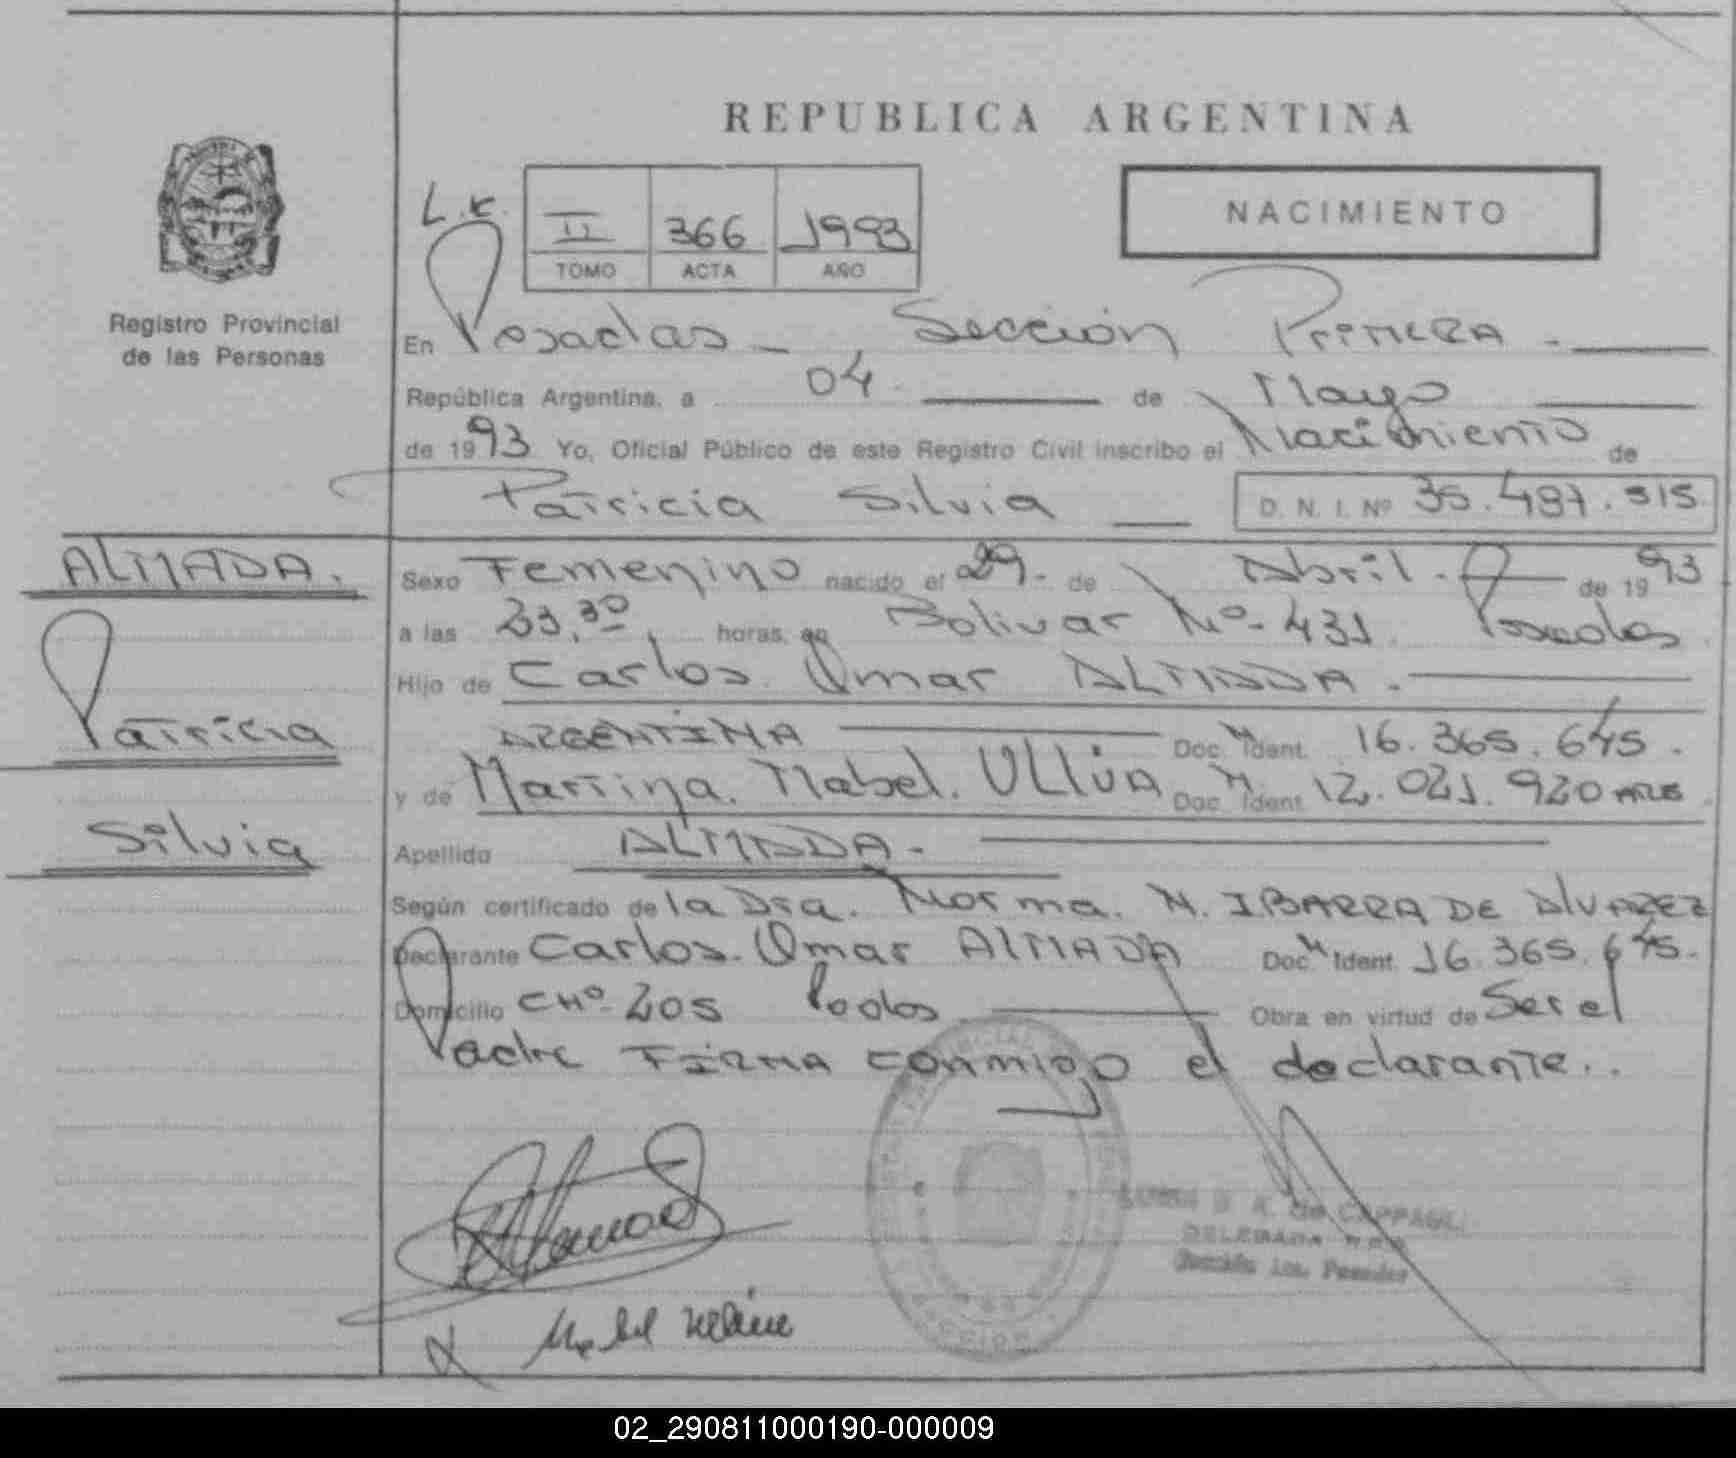 REPUBLICA ARGENTINA
NACIMIENTO
L.E.
II 366 1993
TOMO ACTA AÑO
Registro Provincial
de las Personas
En Posadas - Sección Primera -
República Argentina, a 04 de Mayo
de 1993 Yo, Oficial Público de este Registro Civil inscribo el Nacimiento de
Patricia Silvia D. N. I. Nº 35.487.515
ALMADA.
Patricia
Silvia
Sexo Femenino nacido el 29- de Abril - de 1993
a las 23,30 horas, en Bolivar Nº- 431 Posadas
Hijo de Carlos Omar ALMADA -
ARGENTINA Doc. M Ident. 16.365.645.
y de Martina Mabel. Doc. M. Ident. 12.021.920 ARG
Apellido ALMADA -
Según certificado de la Dra. Norma. M. IBARRA DE ALVAREZ
Declarante Carlos Omar ALMADA Doc. M Ident. 16.365.645.
Domicilio CHº 205 Podos Obra en virtud de Ser el
Padre FIRMA conmigo el declarante..
DELEGADA
02_290811000190-000009